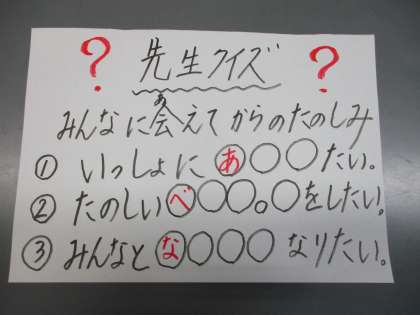 ? 先生クイズ ?
みんなに会えてからのたのしみ
① いっしょに あ○○たい。
② たのしい べ○○。○をしたい!
③ みんなと な○○○なりたい。